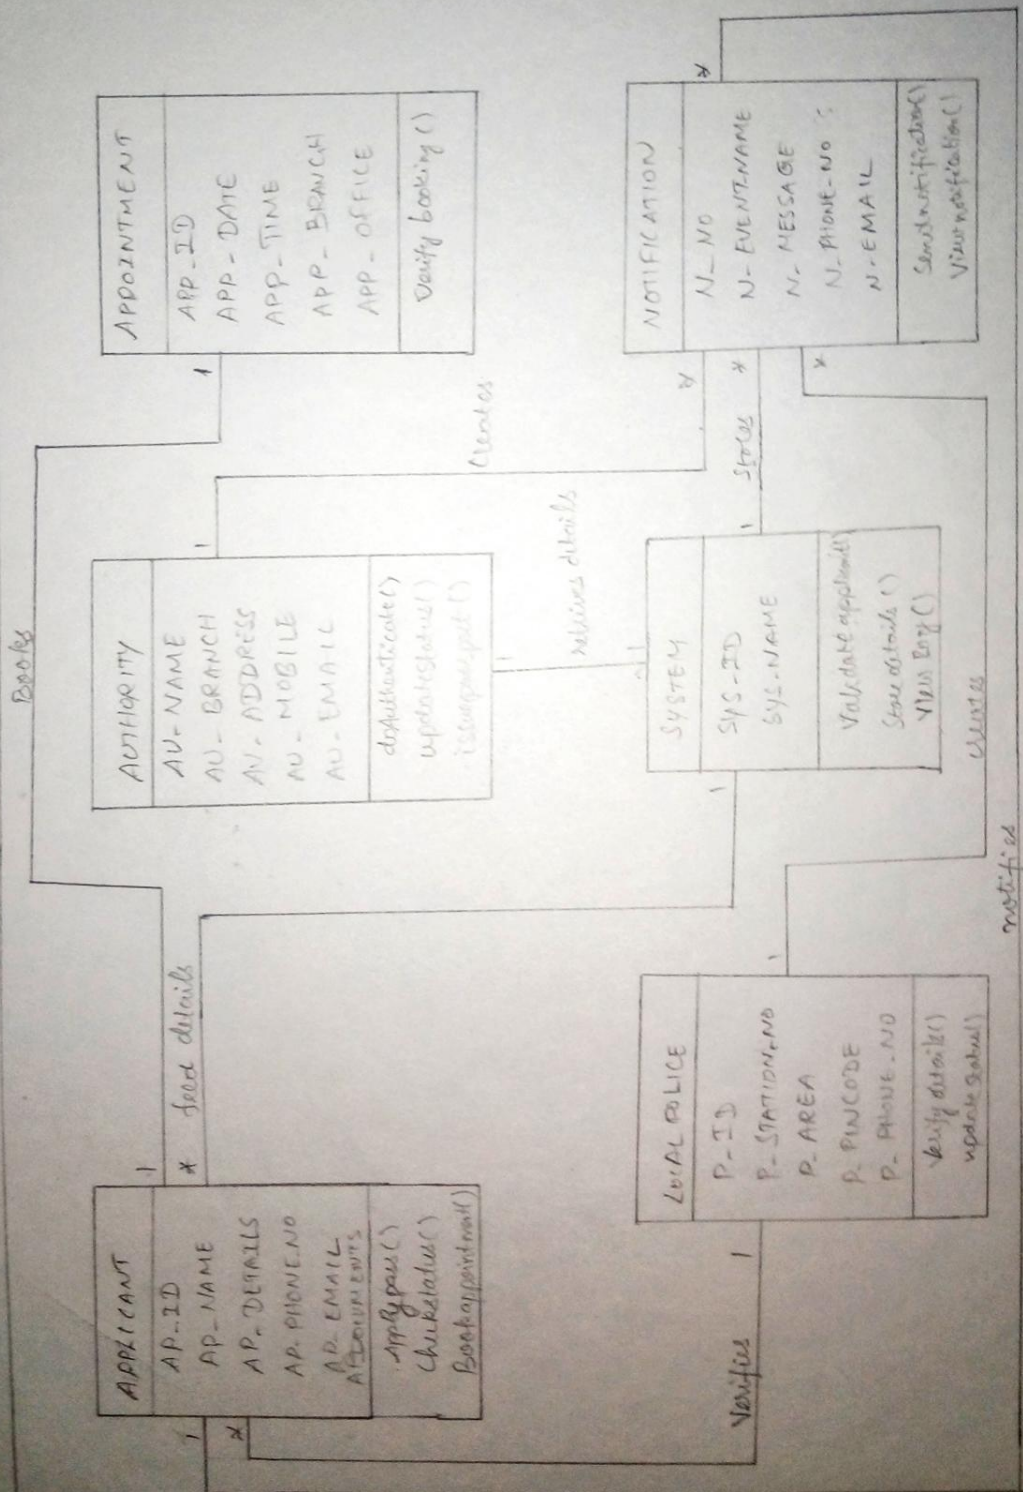 APPLICANT
AP_ID
AP_NAME
AP_DETAILS
AP_PHONE_NO
AP_EMAIL
AP_DOCUMENTS
Applypass()
Checkstatus()
Bookappointment()
1
*
feed details
1
Books
AUTHORITY
AU_NAME
AU_BRANCH
AU_ADDRESS
AU_MOBILE
AU_EMAIL
doAuthenticate()
updatestatus()
1
Creates
1
APPOINTMENT
APP_ID
APP_DATE
APP_TIME
APP_BRANCH
APP_OFFICE
Verify booking()
1
*
Verifies
1
LOCAL POLICE
P_ID
P_STATION_NO
P_AREA
P_PINCODE
P_PHONE_NO
Verify details()
update status()
1
1
details
1
SYSTEM
SYS_ID
SYS_NAME
Store details()
1
Stores
creates
*
*
*
NOTIFICATION
N_NO
N_EVENT_NAME
N_MESSAGE
N_PHONE_NO
N_EMAIL
Sendnotification()
Viewnotification()
*
notifies